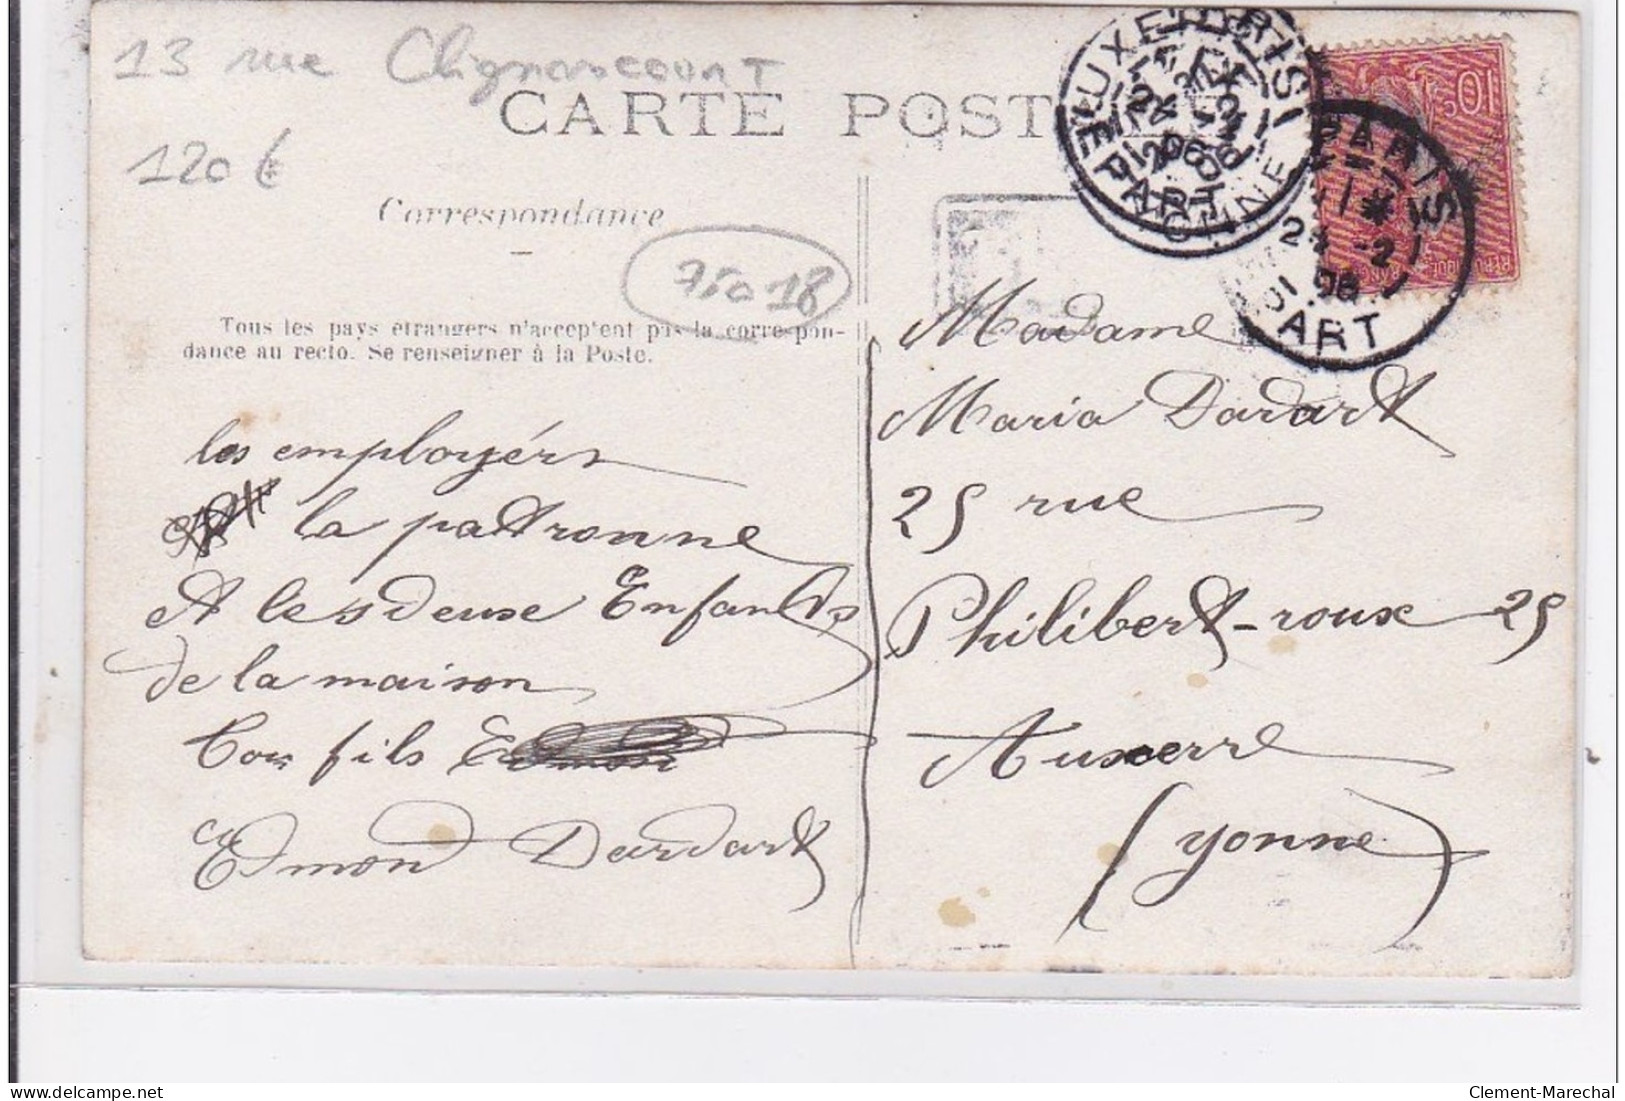 13 rue Clignancourt
120 €
CARTE POSTALE
Correspondance
75018
Tous les pays étrangers n'acceptent pas la correspon-
dance au recto. Se renseigner à la Poste.
les employérs
la pattronne
et les deuse Enfants
de la maison
Ton fils
Edmon Dardart
Madame
Maria Dardart
25 rue
Philibert-roux 25
Auxerre
(yonne)
PARIS
24 -2
06
DEPART
AUXERRE
YONNE
24 -2
06
10c
Clement-Marechal